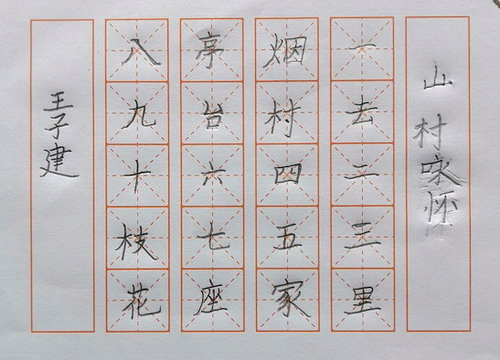 山村咏怀
一去二三里
烟村四五家
亭台六七座
八九十枝花
王子建